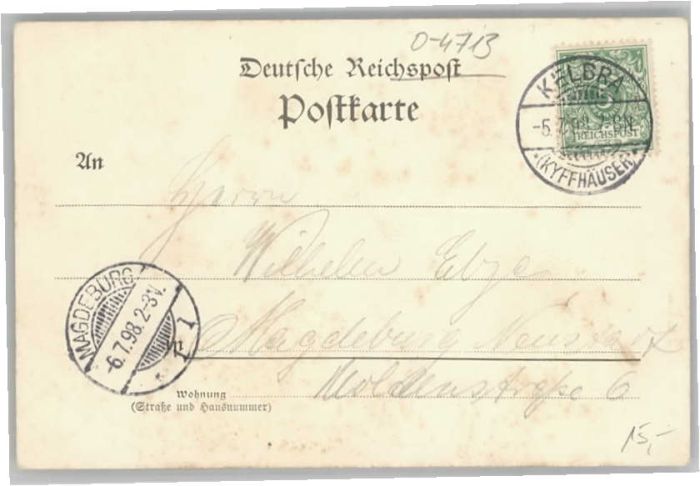 0-4713
Deutsche Reichspost
Postkarte
KELBRA
-5.7.98.7-8N.
(KYFFHÄUSER)
5
REICHSPOST
An
Herrn
Wilhelm
MAGDEBURG
-6.7.98.2-3N.
1
in Magdeburg Neustadt
Wohnung
(Straße und Hausnummer)
6
15,-